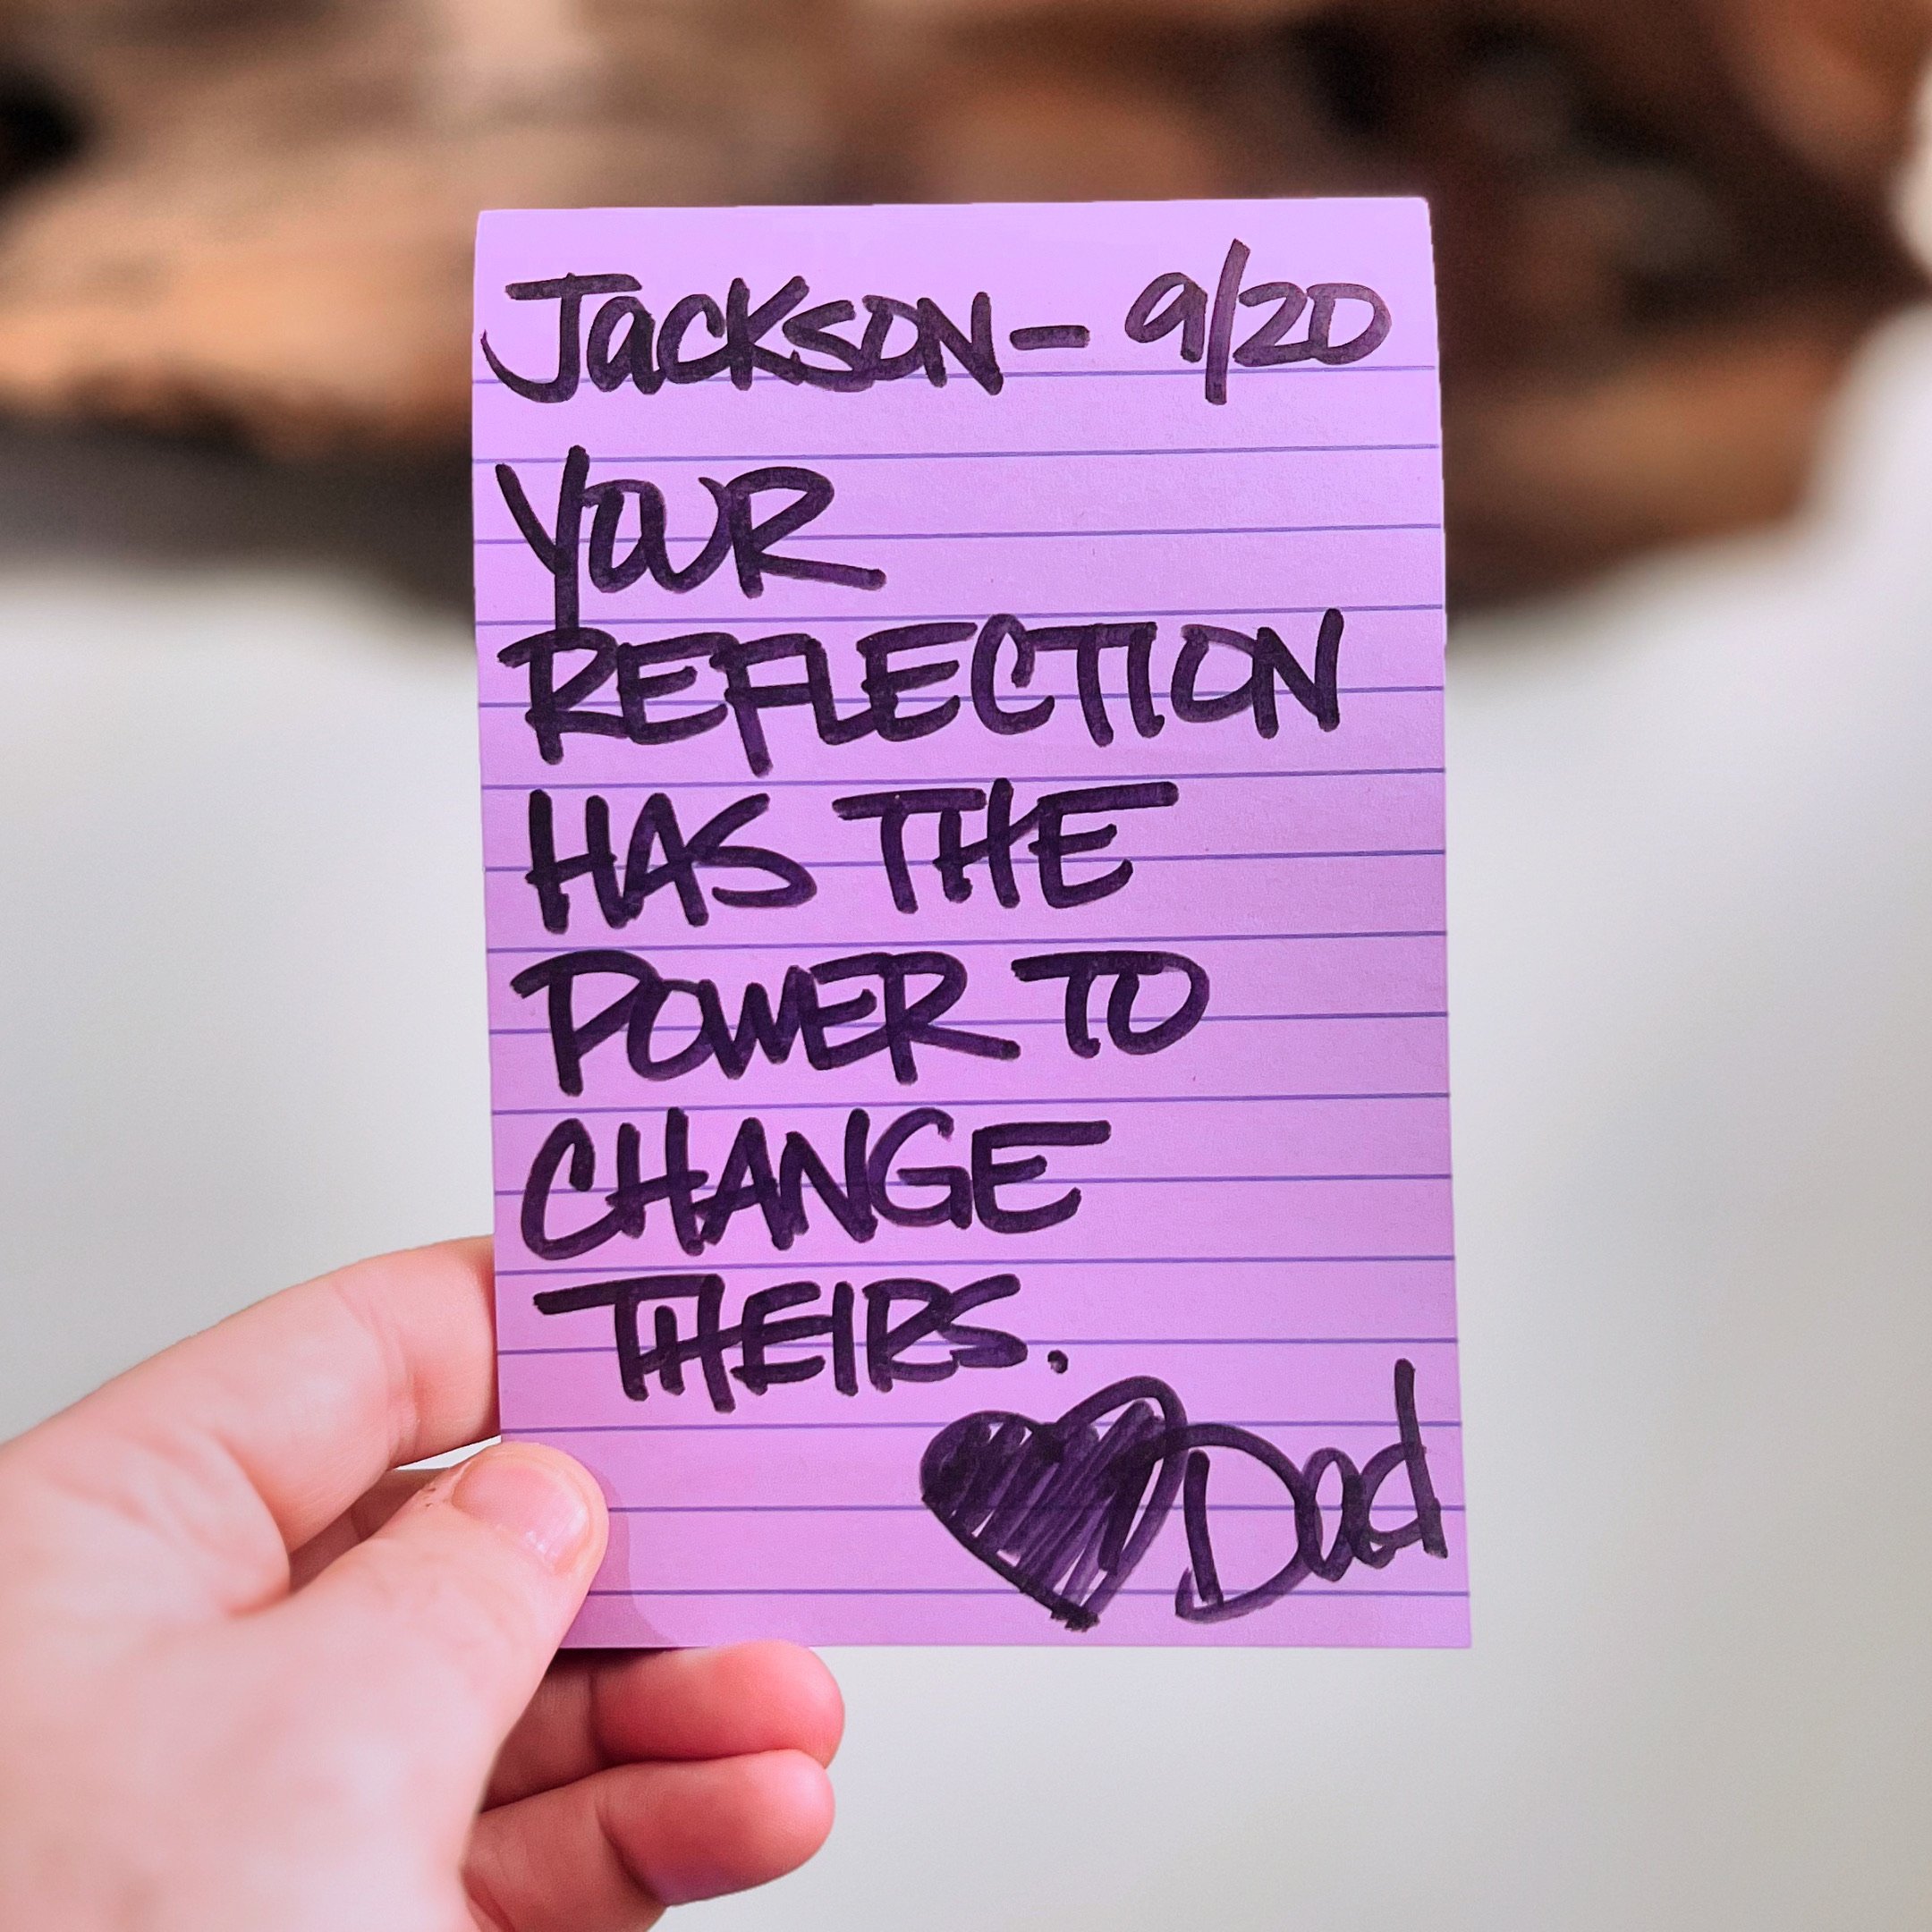 Jackson - 9/20
YOUR
REFLECTION
HAS THE
POWER TO
CHANGE
THEIRS.
Dad